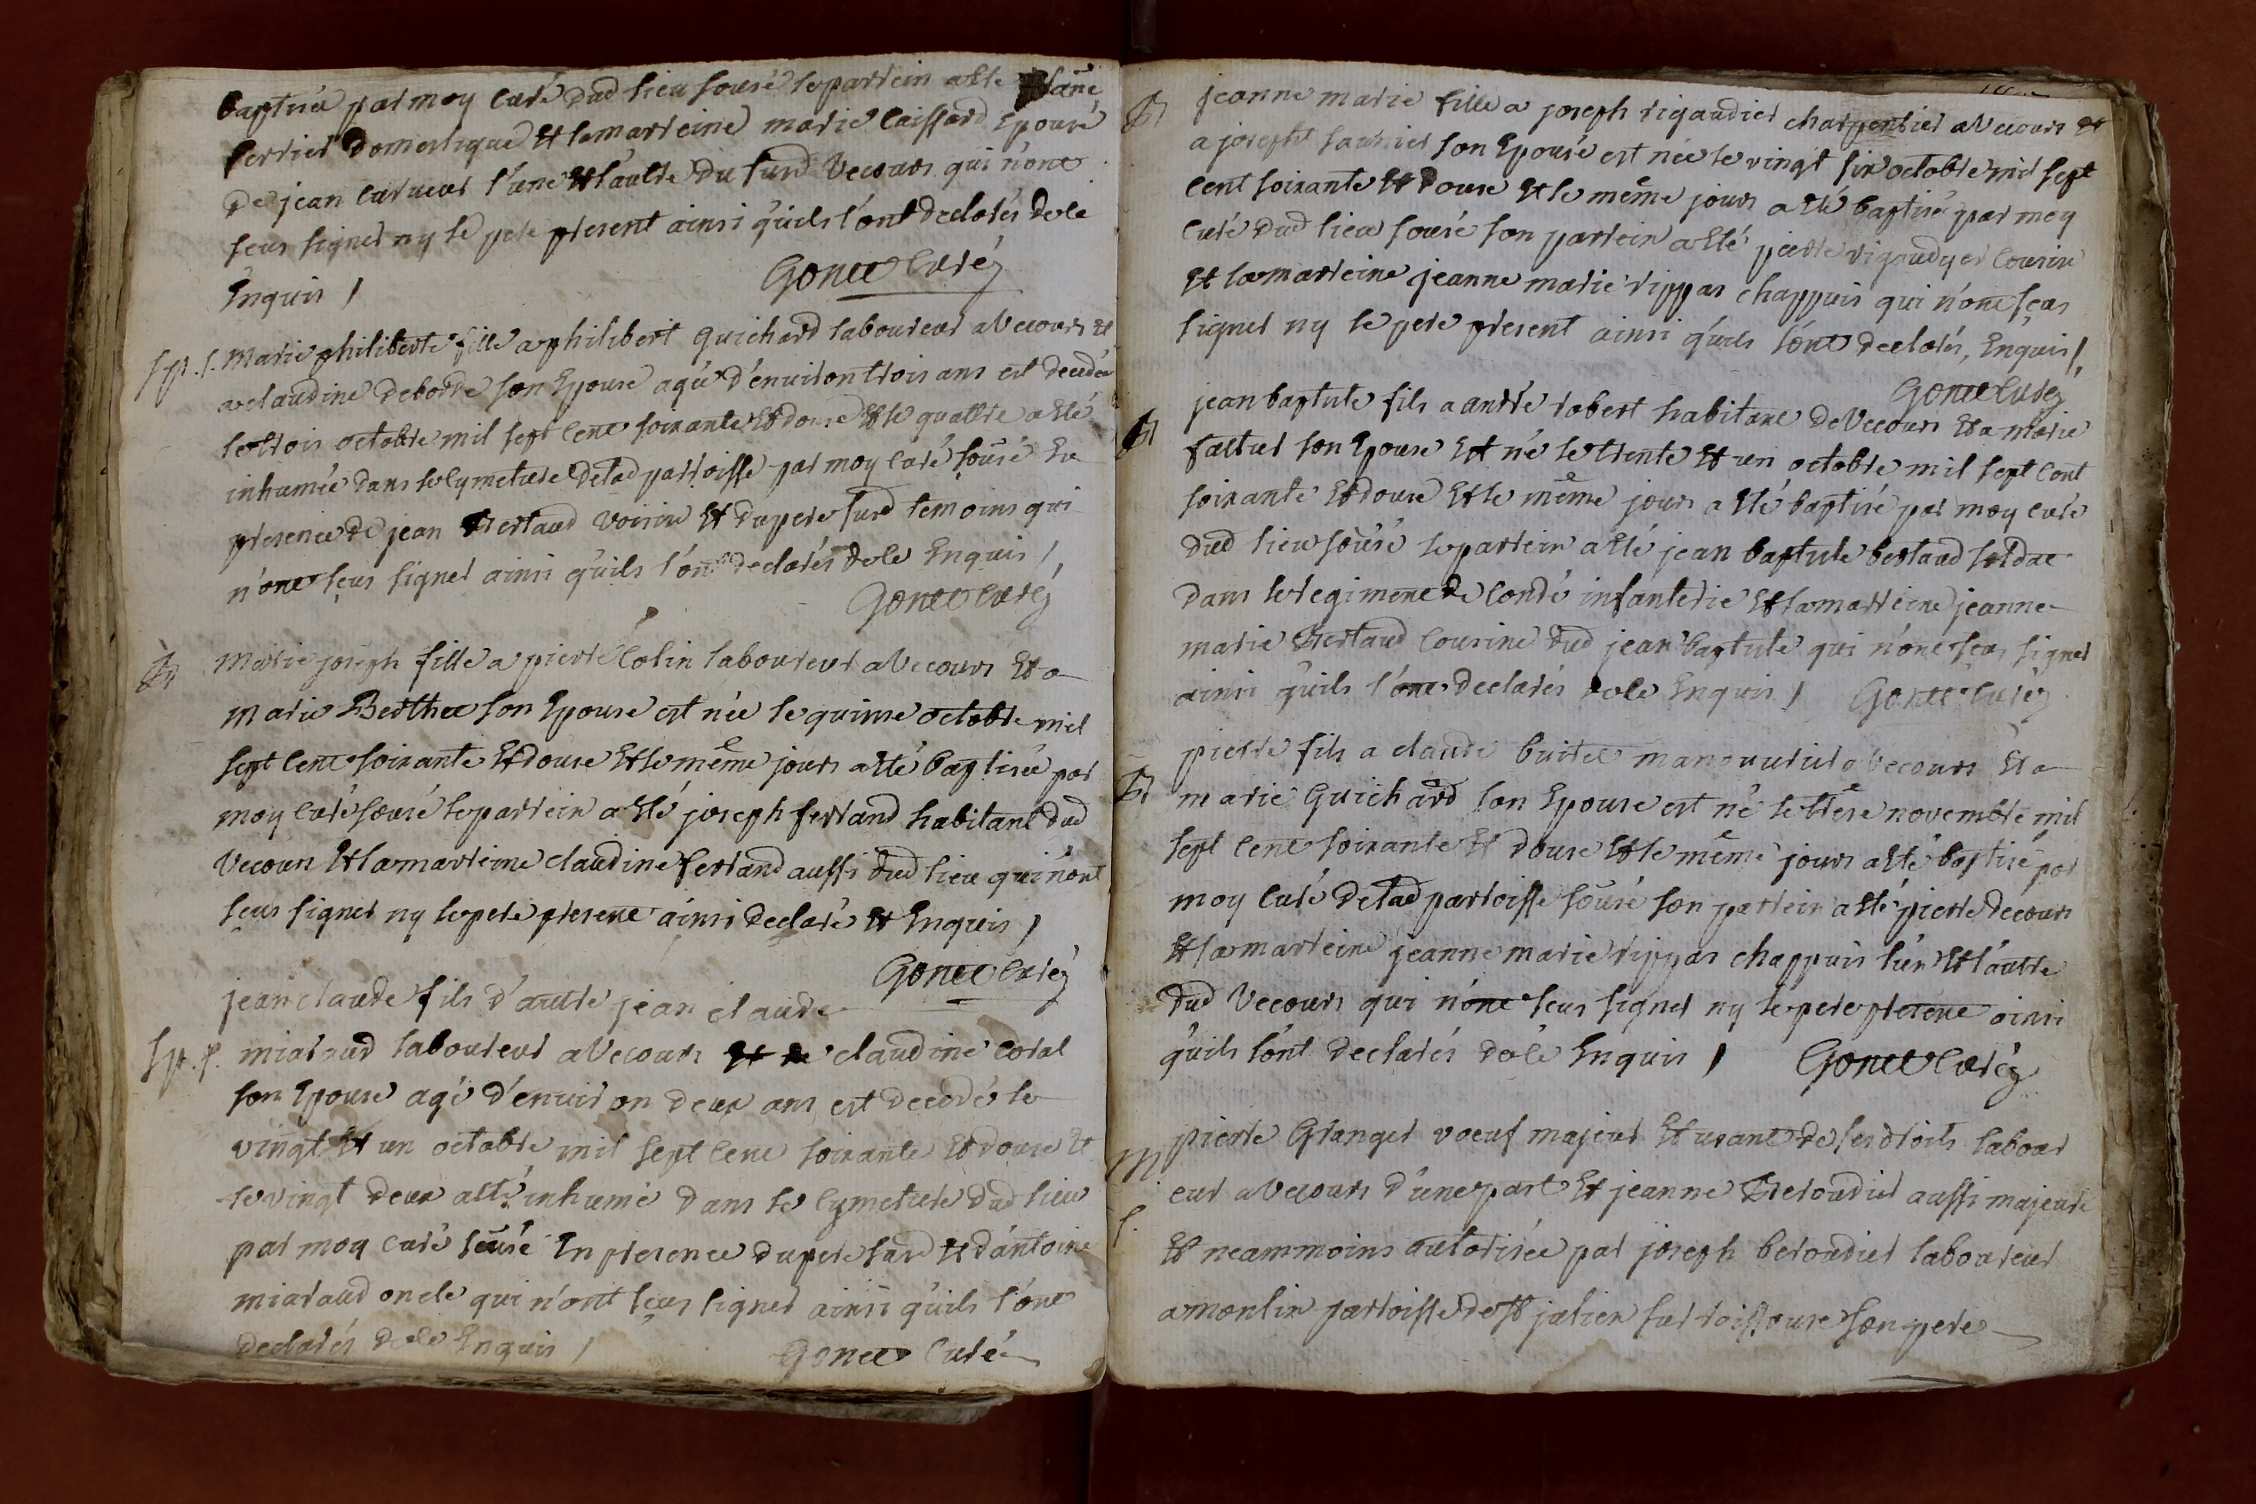 baptisée par moy curé dud lieu sousé le parrein a esté
perrier domestique Et la marreine marie caissard Epouse
de jean l'une Et l'autre du susd Vecours qui n'ont
sçus signer ny le pere present ainsi qu'ils l'ont declarés de le
Enquis /
Gonet curé
Sp. f. Marie philiberte fille a philibert Guichard laboureur a Vecours et
a claudine deborde son Epouse agée d'environ trois ans est decedée
le trois octobre mil sept cent soixante Et douse Et le quattre a esté
inhumée dans le cymetiere de lad parroisse par moy curé sousé En
presence de jean Bertaud voisin Et du pere susd temoins qui
n'ont sçus signer ainsi qu'ils l'ont declarés de le Enquis /
Gonet curé
B
Marie joseph fille a pierre Colin laboureur a Vecours Et a
Marie Berthet son Epouse est née le quinse octobre mil
sept cent soixante Et douse Et le même jours a esté baptisée par
moy curé sousé le parrein a esté joseph ferrand habitant dud
Vecours Et la marreine claudine ferrand aussi dud lieu qui n'ont
sçus signer ny le pere present ainsi declaré Et Enquis /
Gonet curé
jean claude fils d'autre jean claude
Sp. f. miaraud laboureur a Vecours claudine coral
son Epouse agé d'environ deux ans est decedé le
vingt Et un octobre mil sept cent soixante Et douse Et
le vingt deux a esté inhumé dans le cymetiere dud lieu
par moy curé sousé En presence du pere susd Et d'antoine
miaraud oncle qui n'ont sçus signer ainsi qu'ils l'ont
declarés de le Enquis /
Gonet curé
B
jeanne marie fille a joseph rigaudier charpentier a Vecours et
a josepht saunier son Epouse est née le vingt six octobre mil sept
cent soixante Et douse Et le même jours a esté baptisée par moy
curé dud lieu sousé son parrein a esté pierre rigaudyer cousin
Et la marreine jeanne marie rippas chappuis qui n'ont sçus
signer ny le pere present ainsi qu'ils l'ont declarés, Enquis /
Gonet curé
B
jean baptiste fils a andré robert habitant de Vecours Et a marie
son Epouse Est né le trente Et un octobre mil sept cent
soixante Et douse Et le même jours a esté baptisé par moy curé
dud lieu sousé le parrein a esté jean baptiste bertaud soldat
dans le regiment de condé infanterie Et la marreine jeanne
marie Bertaud cousine dud jean baptiste qui n'ont sçus signer
ainsi qu'ils l'ont declarés de le Enquis / Gonet curé
B
pierre fils a claude buiret manouvrier a Vecours Et a
marie Guichard son Epouse est né le trese novembre mil
sept cent soixante Et douse Et le même jours a esté baptisé par
moy curé de lad parroisse sousé son parrein a esté pierre decours
Et la marreine jeanne marie rippas chappuis l'un Et l'autre
dud Vecours qui n'ont sçus signer ny le pere present ainsi
qu'ils l'ont declarés de le Enquis / Gonet curé
M
f.
pierre Granger voeuf majeur Et usant de ses droits labour
eur a Vecours d'une part Et jeanne Beroudier aussi majeure
Et neammoins autorisée par joseph beroudier laboureur
a moulin parroisse de St julien sur roissouse son pere